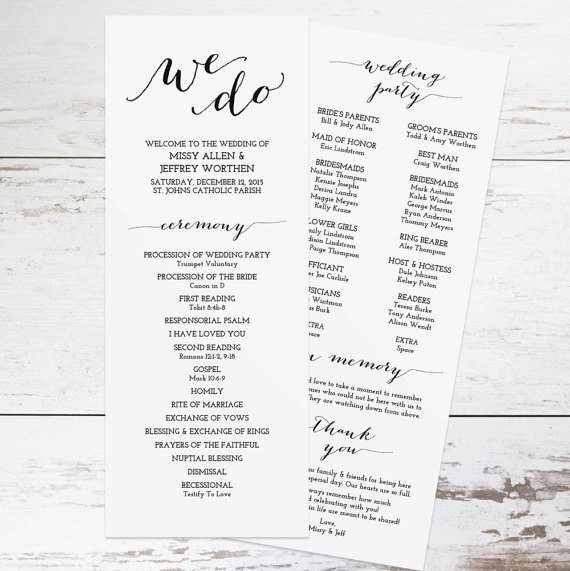 we
do
WELCOME TO THE WEDDING OF
MISSY ALLEN &
JEFFREY WORTHEN
SATURDAY, DECEMBER 12, 2015
ST. JOHNS CATHOLIC PARISH
ceremony
PROCESSION OF WEDDING PARTY
Trumpet Voluntary
PROCESSION OF THE BRIDE
Canon in D
FIRST READING
Tobit 8:4b-8
RESPONSORIAL PSALM
I HAVE LOVED YOU
SECOND READING
Romans 12:1-2, 9-18
GOSPEL
Mark 10:6-9
HOMILY
RITE OF MARRIAGE
EXCHANGE OF VOWS
BLESSING & EXCHANGE OF RINGS
PRAYERS OF THE FAITHFUL
NUPTIAL BLESSING
DISMISSAL
RECESSIONAL
Testify To Love
wedding
party
BRIDE'S PARENTS
Bill & Jody Allen
MAID OF HONOR
Eric Lindstrom
BRIDESMAIDS
Natalie Thompson
Kenzie Josephs
Derica Landra
Maggie Thompson
Kelly Krane
FLOWER GIRLS
Emily Lindstrom
Madison Lindstrom
Paige Thompson
OFFICIANT
Joe Carlisle
MUSICIANS
Wintman
Burk
EXTRA
Space
GROOM'S PARENTS
Todd & Amy Worthen
BEST MAN
Craig Worthen
BRIDESMAIDS
Mark Antonio
Kaleb Winder
George Marcus
Ryan Anderson
Thommy Meyers
RING BEARER
Alec Thompson
HOST & HOSTESS
Dale Johnson
Kelsey Puton
READERS
Teresa Burke
Tony Anderson
Alison Wendt
EXTRA
Space
memory
love to take a moment to remember
ones who could not be here with us to
They are watching down from above.
thank
you
our family & friends for being here
special day. Our hearts are so full.
always remember how much
celebrating with you!
in life are meant to be shared!
Love,
Missy & Jeff